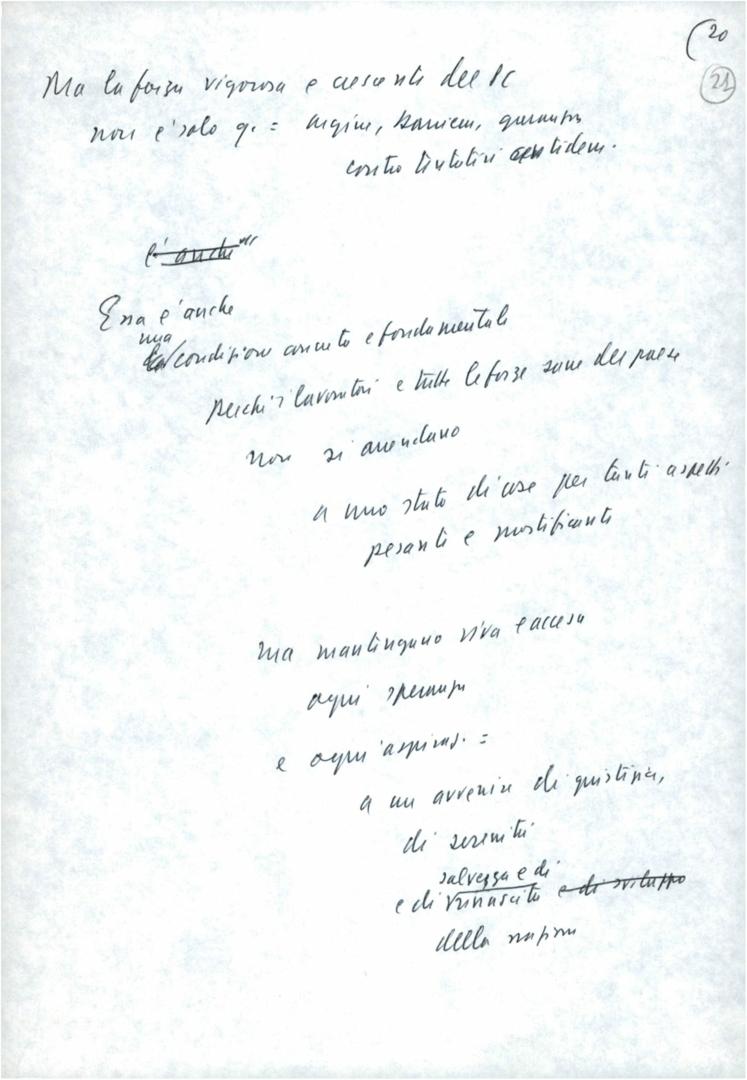 (20
21
Ma la forza vigorosa e crescente del PC
non è solo q. = argine, barriera, garanzia
contro tentativi antidem.
è anche
Essa è anche
una
la condizione concreta e fondamentale
perché i lavoratori e tutte le forze sane del paese
non si arrendano
a uno stato di cose per tanti aspetti
pesante e mortificante
ma mantengano viva e accesa
ogni speranza
e ogni aspiraz. =
a un avvenire di giustizia,
di serenità
salvezza e di
e di rinascita e di sviluppo
della nazione